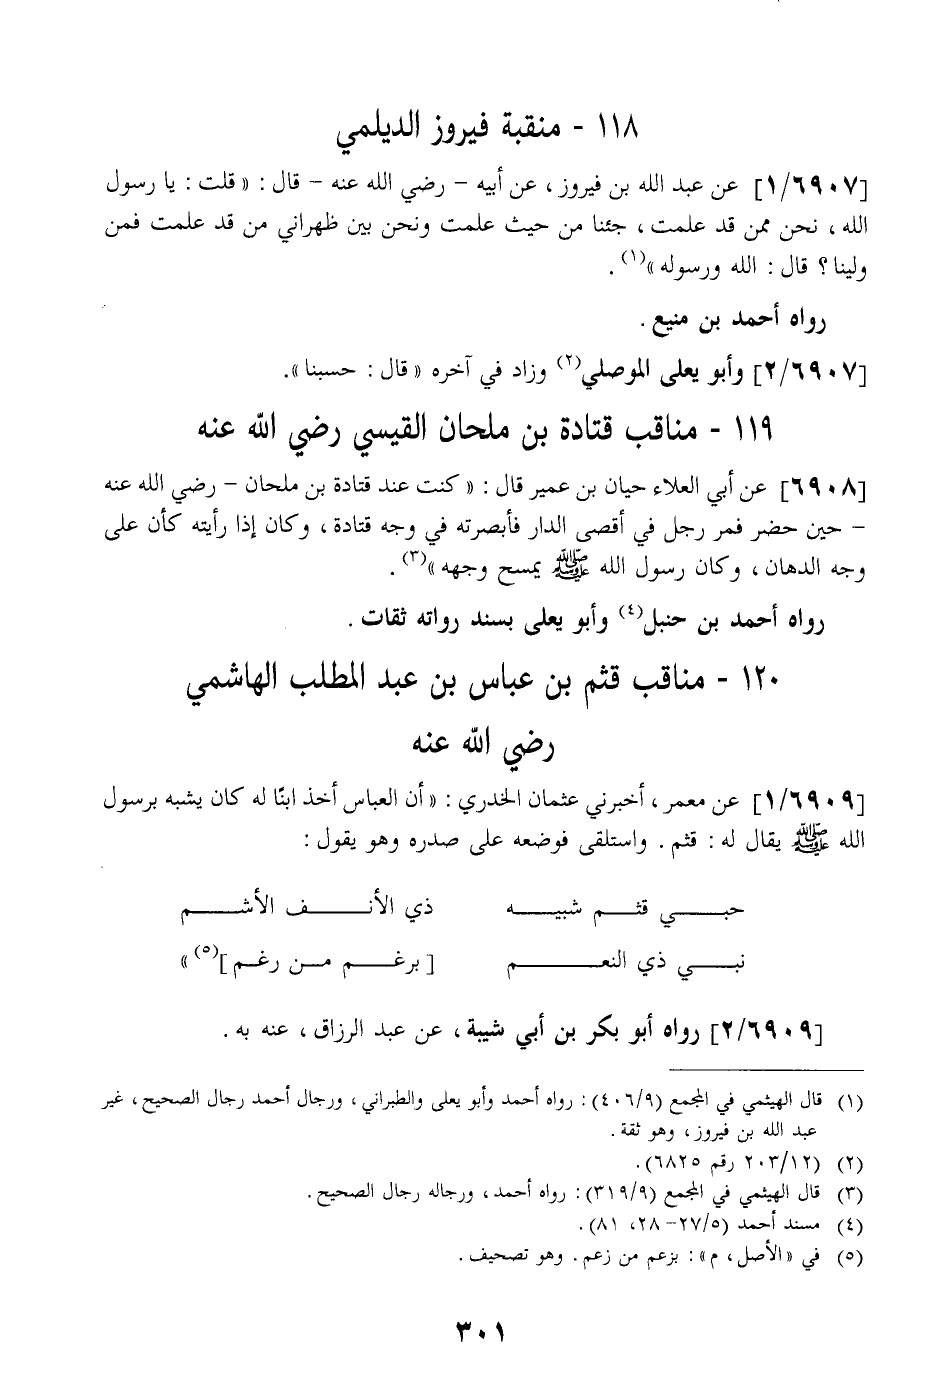 ١١٨ - منقبة فيروز الديلمي
[١/٦٩٠٧] عن عبد الله بن فيروز ، عن أبيه - رضي الله عنه - قال : « قلت : يا رسول
الله ، نحن ممن قد علمت ، جئنا من حيث علمت ونحن بين ظهراني من قد علمت فمن
ولينا ؟ قال : الله ورسوله »(١) .
رواه أحمد بن منيع .
[٢/٦٩٠٧] وأبو يعلى الموصلي(٢) وزاد في آخره « قال : حسبنا ».
١١٩ - مناقب قتادة بن ملحان القيسي رضي الله عنه
[٦٩٠٨] عن أبي العلاء حيان بن عمير قال : « كنت عند قتادة بن ملحان - رضي الله عنه
- حين حضر فمر رجل في أقصى الدار فأبصرته في وجه قتادة ، وكان إذا رأيته كأن على
وجه الدهان ، وكان رسول الله ﷺ يمسح وجهه »(٣) .
رواه أحمد بن حنبل(٤) وأبو يعلى بسند رواته ثقات .
١٢٠ - مناقب قثم بن عباس بن عبد المطلب الهاشمي
رضي الله عنه
[١/٦٩٠٩] عن معمر ، أخبرني عثمان الخدري : « أن العباس أخذ ابنًا له كان يشبه برسول
الله ﷺ يقال له : قثم . واستلقى فوضعه على صدره وهو يقول :
حبـــي قثـــم شبيـــه ذي الأنـــف الأشـــم
نبـــي ذي النعـــم [ برغـــم مـــن رغـــم ](٥) »
[٢/٦٩٠٩] رواه أبو بكر بن أبي شيبة ، عن عبد الرزاق ، عنه به .
(١) قال الهيثمي في المجمع (٤٠٦/٩) : رواه أحمد وأبو يعلى والطبراني ، ورجال أحمد رجال الصحيح ، غير
عبد الله بن فيروز ، وهو ثقة .
(٢) (٢٠٣/١٢ رقم ٦٨٢٥).
(٣) قال الهيثمي في المجمع (٣١٩/٩) : رواه أحمد ، ورجاله رجال الصحيح .
(٤) مسند أحمد (٢٧/٥-٢٨، ٨١) .
(٥) في «الأصل ، م» : بزعم من زعم . وهو تصحيف .
٣٠١